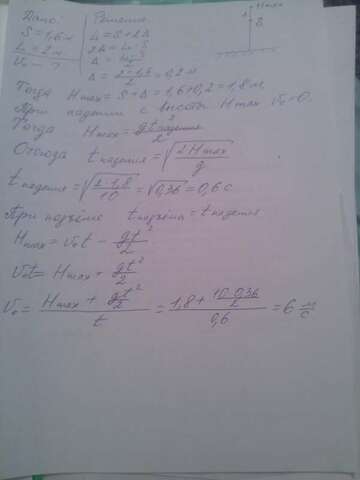 Дано: Решение
Hmax
S
S = 1,6 м L = S + 2Δ
L = 2 м 2Δ = L - S
V₀ - ? Δ = (L-S)/2
Δ = (2-1,6)/2 = 0,2 м
Тогда Hmax = S + Δ = 1,6 + 0,2 = 1,8 м
При падении с высоты Hmax V₀ = 0.
Тогда Hmax = gt²падения/2
Отсюда t падения = √(2Hmax/g)
t падения = √(2·1,8/10) = √0,36 = 0,6 с
При подъёме t подъёма = t падения
Hmax = V₀t - gt²/2
V₀t = Hmax + gt²/2
V₀ = (Hmax + gt²/2)/t = (1,8 + 10·0,36/2)/0,6 = 6 м/с